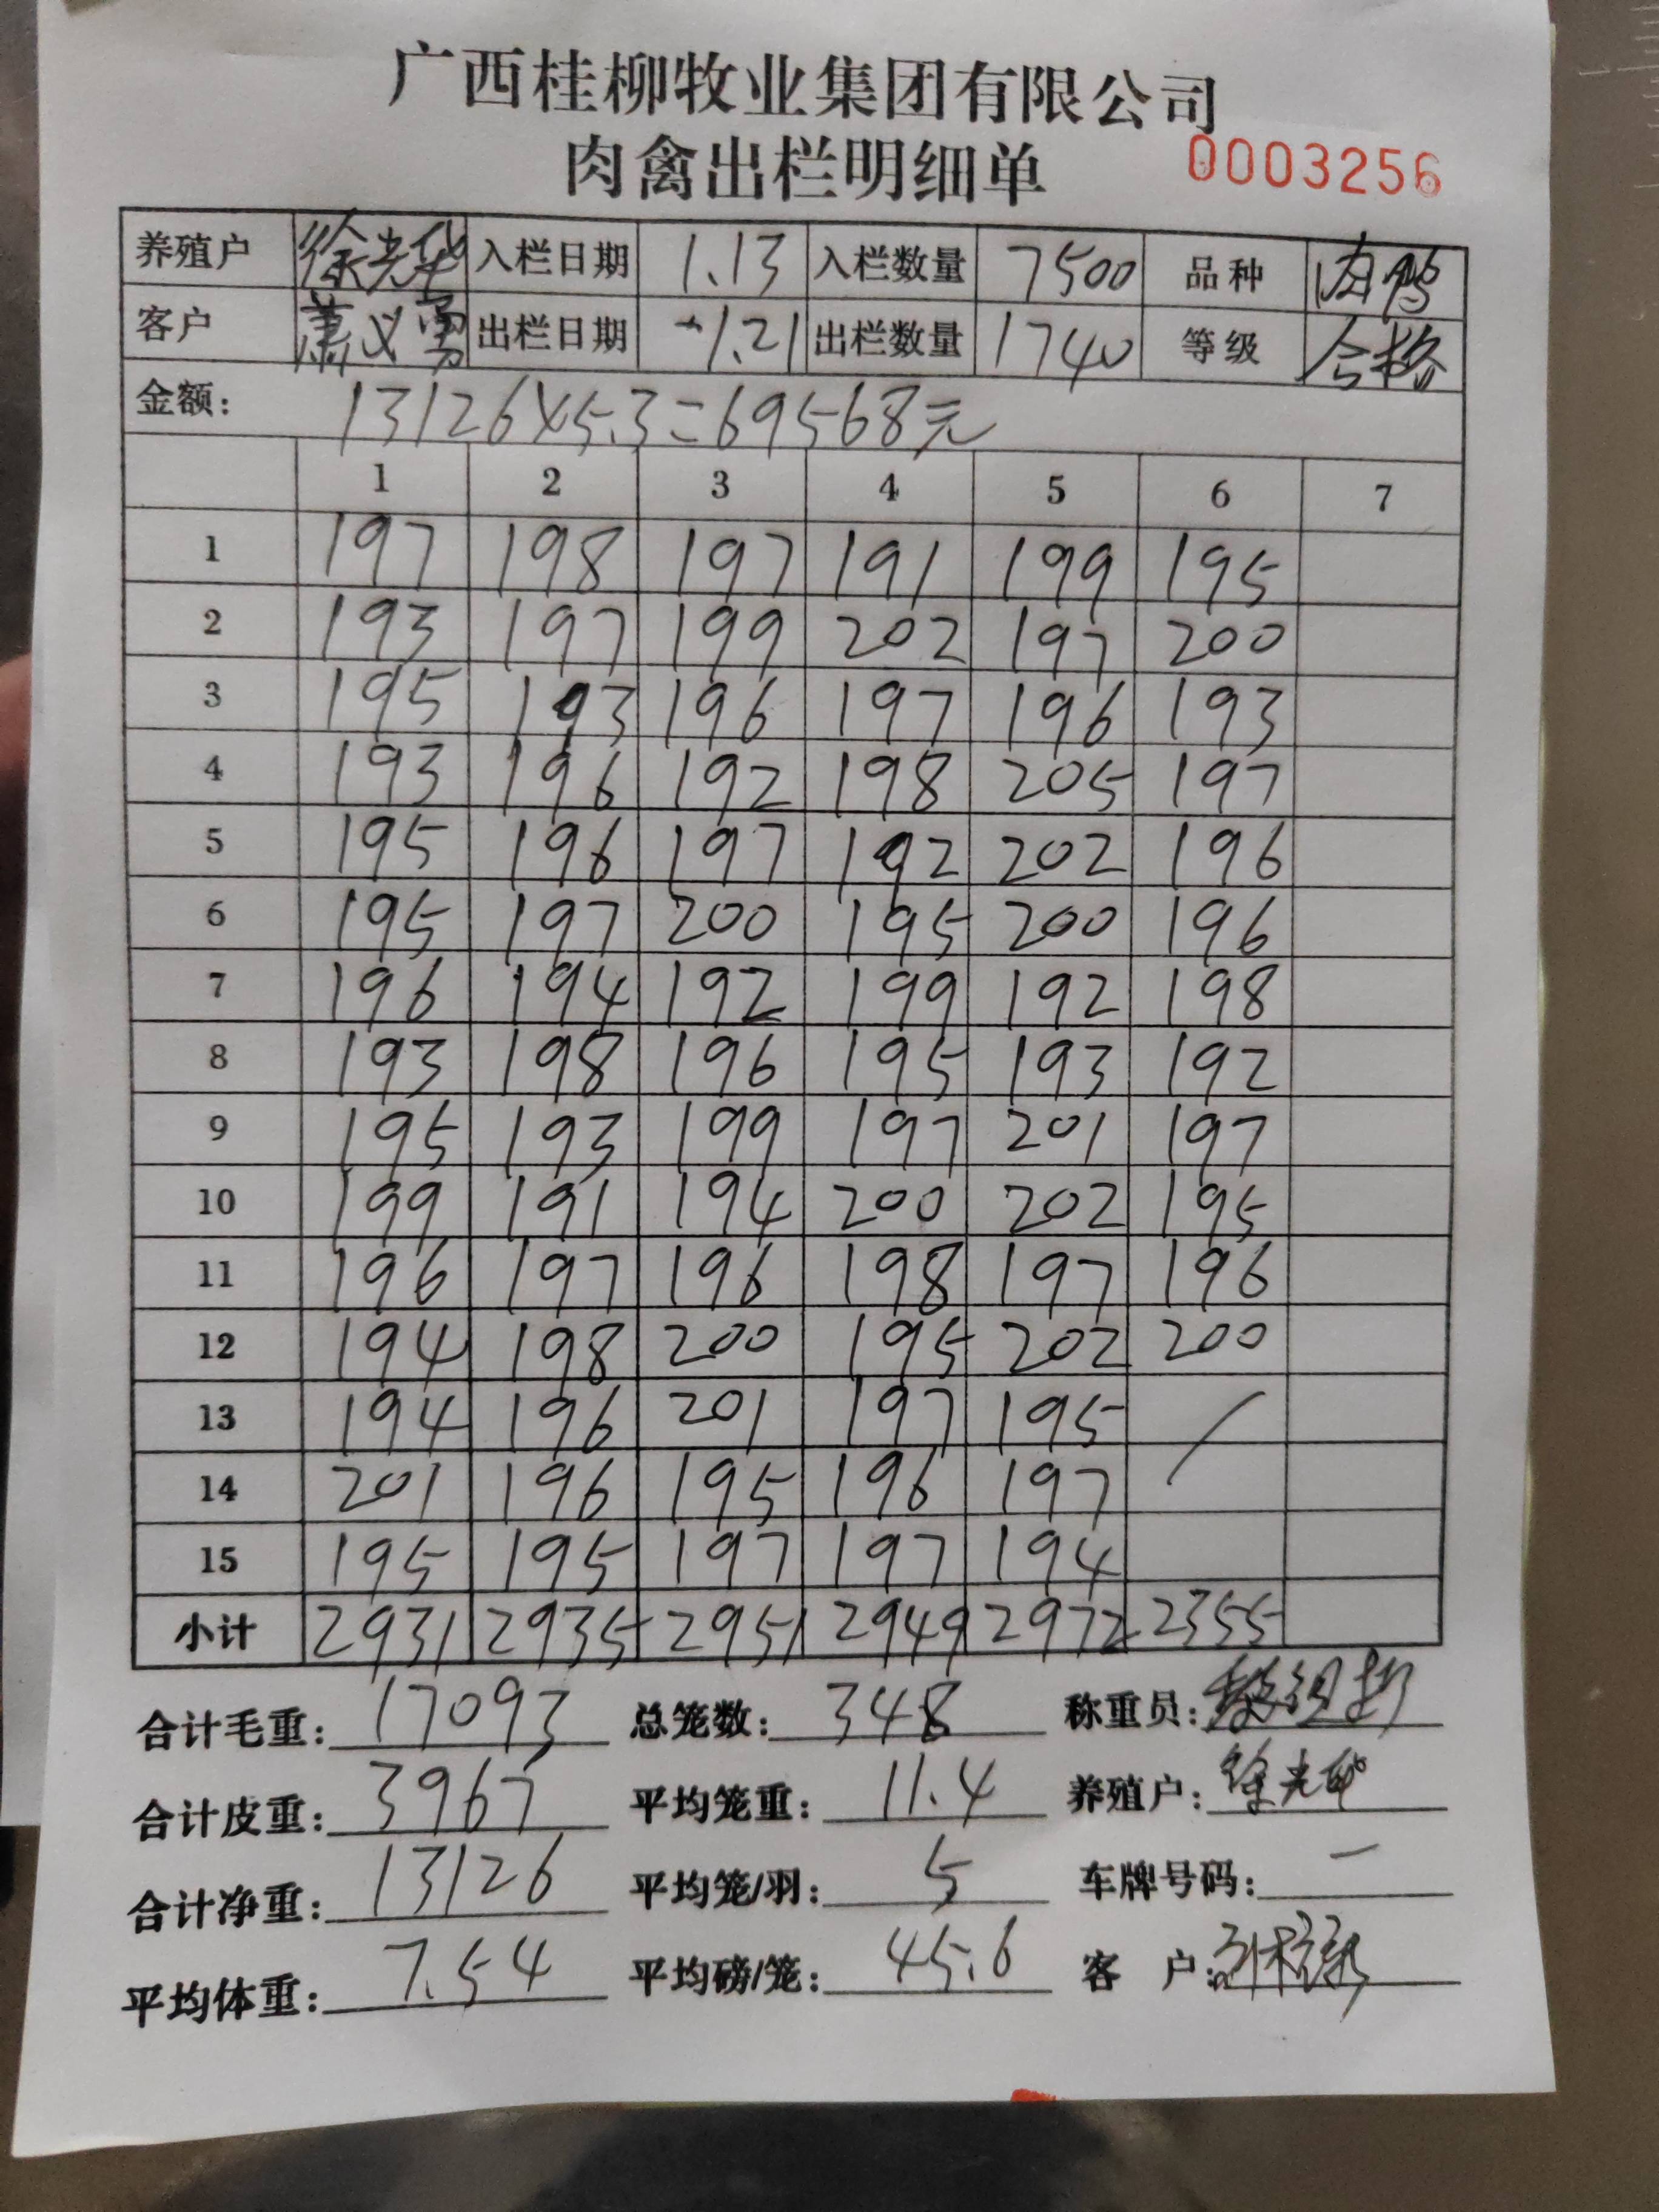 广西桂柳牧业集团有限公司
肉禽出栏明细单 0003256
养殖户 徐光华 入栏日期 1.13 入栏数量 7500 品种 肉鸭
客户 萧义勇 出栏日期 -1.21 出栏数量 1740 等级 合格
金额: 13126×5.3=69568元
1 2 3 4 5 6 7
1 197 198 197 191 199 195
2 193 197 199 202 197 200
3 195 193 196 197 196 193
4 193 196 192 198 205 197
5 195 196 197 192 202 196
6 195 197 200 195 200 196
7 196 194 192 199 192 198
8 193 198 196 195 193 192
9 195 193 199 197 201 197
10 199 191 194 200 202 195
11 196 197 196 198 197 196
12 194 198 200 195 202 200
13 194 196 201 197 195 /
14 201 196 195 196 197
15 195 195 197 197 194
小计 2931 2935 2951 2949 2972 2355
合计毛重: 17093 总笼数: 348 称重员:
合计皮重: 3967 平均笼重: 11.4 养殖户: 徐光华
合计净重: 13126 平均笼/羽: 5 车牌号码: —
平均体重: 7.54 平均磅/笼: 45.6 客 户: